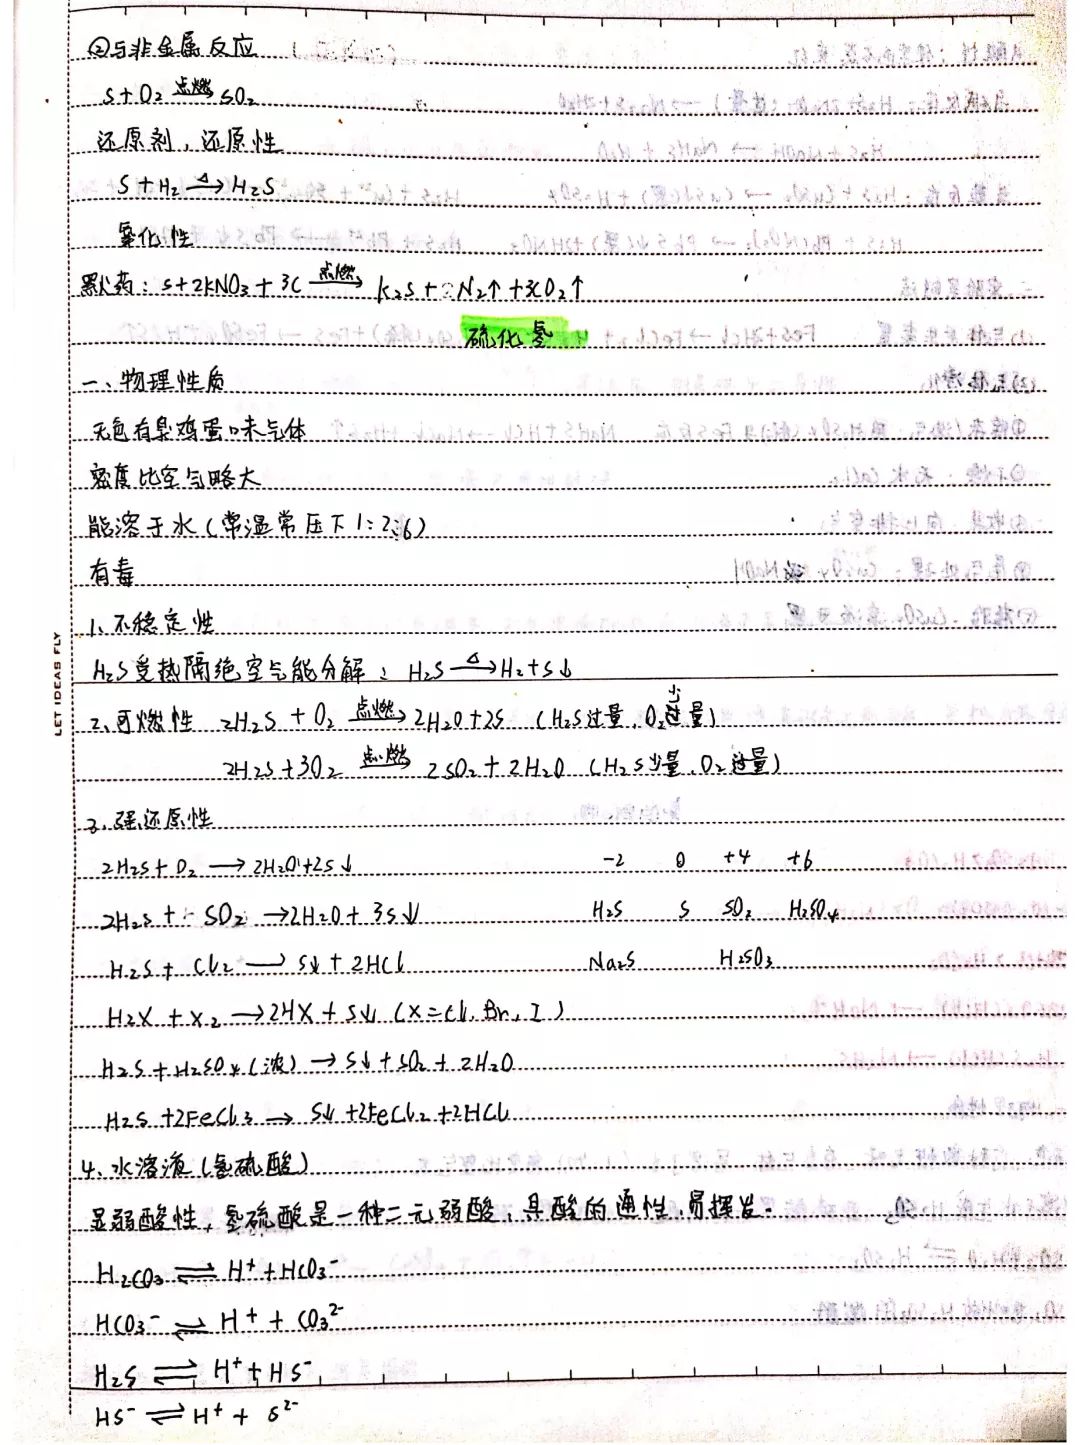 ②与非金属反应
S+O₂ 点燃→ SO₂
还原剂，还原性
S+H₂ △→ H₂S
氧化性
黑火药：S+2KNO₃+3C 点燃→ K₂S+N₂↑+3CO₂↑
硫化氢
一、物理性质
无色有臭鸡蛋味气体
密度比空气略大
能溶于水（常温常压下1:2.6）
有毒
1、不稳定性
H₂S受热隔绝空气能分解：H₂S △→ H₂+S↓
2、可燃性 2H₂S+O₂ 点燃→ 2H₂O+2S （H₂S过量，O₂少量）
2H₂S+3O₂ 点燃→ 2SO₂+2H₂O （H₂S少量，O₂过量）
3、强还原性
2H₂S+O₂ → 2H₂O+2S↓ -2 0 +4 +6
2H₂S+SO₂ → 2H₂O+3S↓ H₂S S SO₂ H₂SO₄
H₂S+Cl₂ → S↓+2HCl Na₂S H₂SO₃
H₂X+X₂ → 2HX+S↓ （X=Cl、Br、I）
H₂S+H₂SO₄（浓）→ S↓+SO₂+2H₂O
H₂S+2FeCl₃ → S↓+2FeCl₂+2HCl
4、水溶液（氢硫酸）
显弱酸性，氢硫酸是一种二元弱酸，具酸的通性，易挥发。
H₂CO₃ ⇌ H⁺+HCO₃⁻
HCO₃⁻ ⇌ H⁺+CO₃²⁻
H₂S ⇌ H⁺+HS⁻
HS⁻ ⇌ H⁺+S²⁻
LET IDEAS FLY